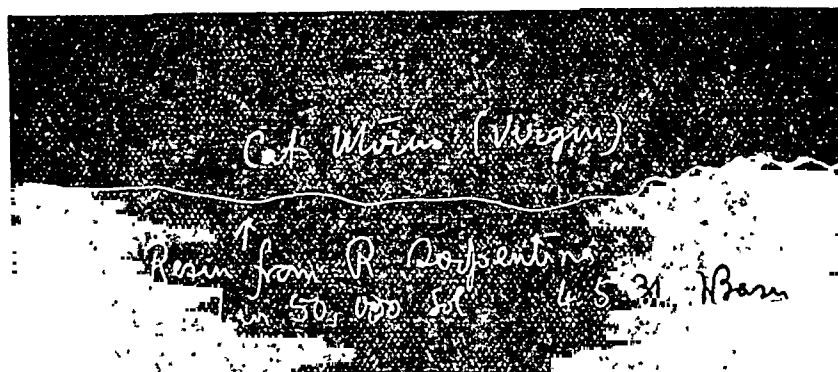 Cat Uterus (Virgin)
↑
Resin from R. Serpentina
1 in 50,000 Sol 4 5 31